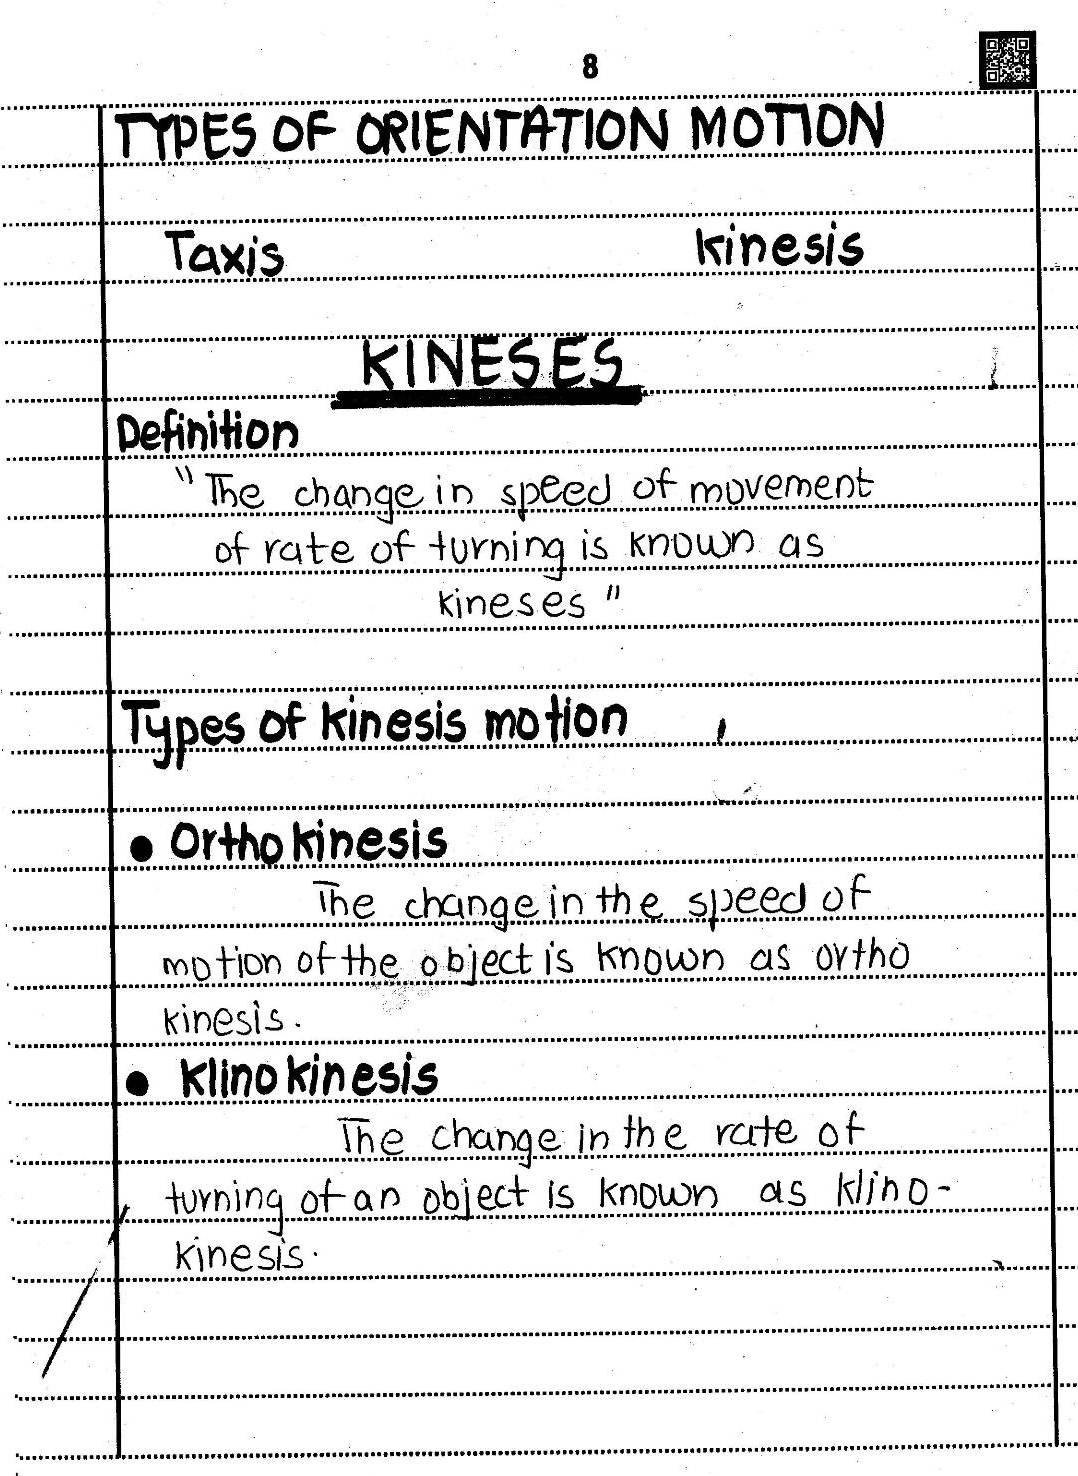 8
TYPES OF ORIENTATION MOTION
Taxis kinesis
KINESES
Definition
"The change in speed of movement
of rate of turning is known as
kineses"
Types of kinesis motion
• Ortho kinesis
The change in the speed of
motion of the object is known as ortho
kinesis.
• Klino kinesis
The change in the rate of
turning of an object is known as klino-
kinesis.